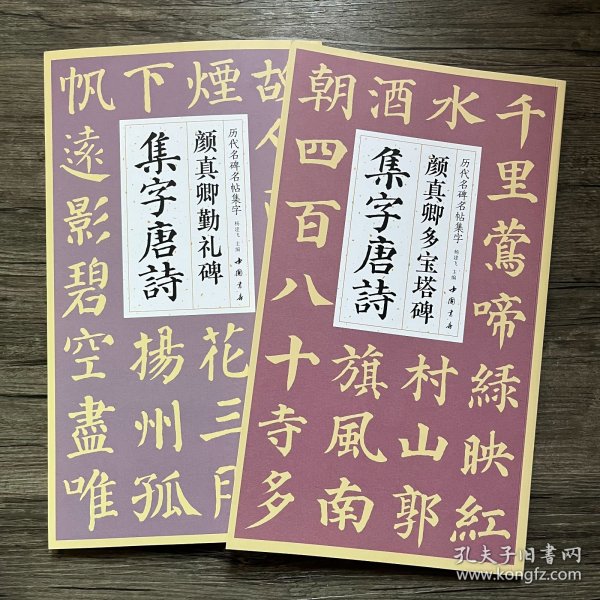 历代名碑名帖集字
杨建飞 主编
中国书店
颜真卿勤礼碑
集字唐詩
故
煙花三月
下揚州孤
帆遠影碧空盡唯
历代名碑名帖集字
杨建飞 主编
中国书店
颜真卿多宝塔碑
集字唐詩
千里鶯啼綠映紅
水村山郭
酒旗風南
朝四百八十寺多
孔夫子旧書网
www.kongfz.com